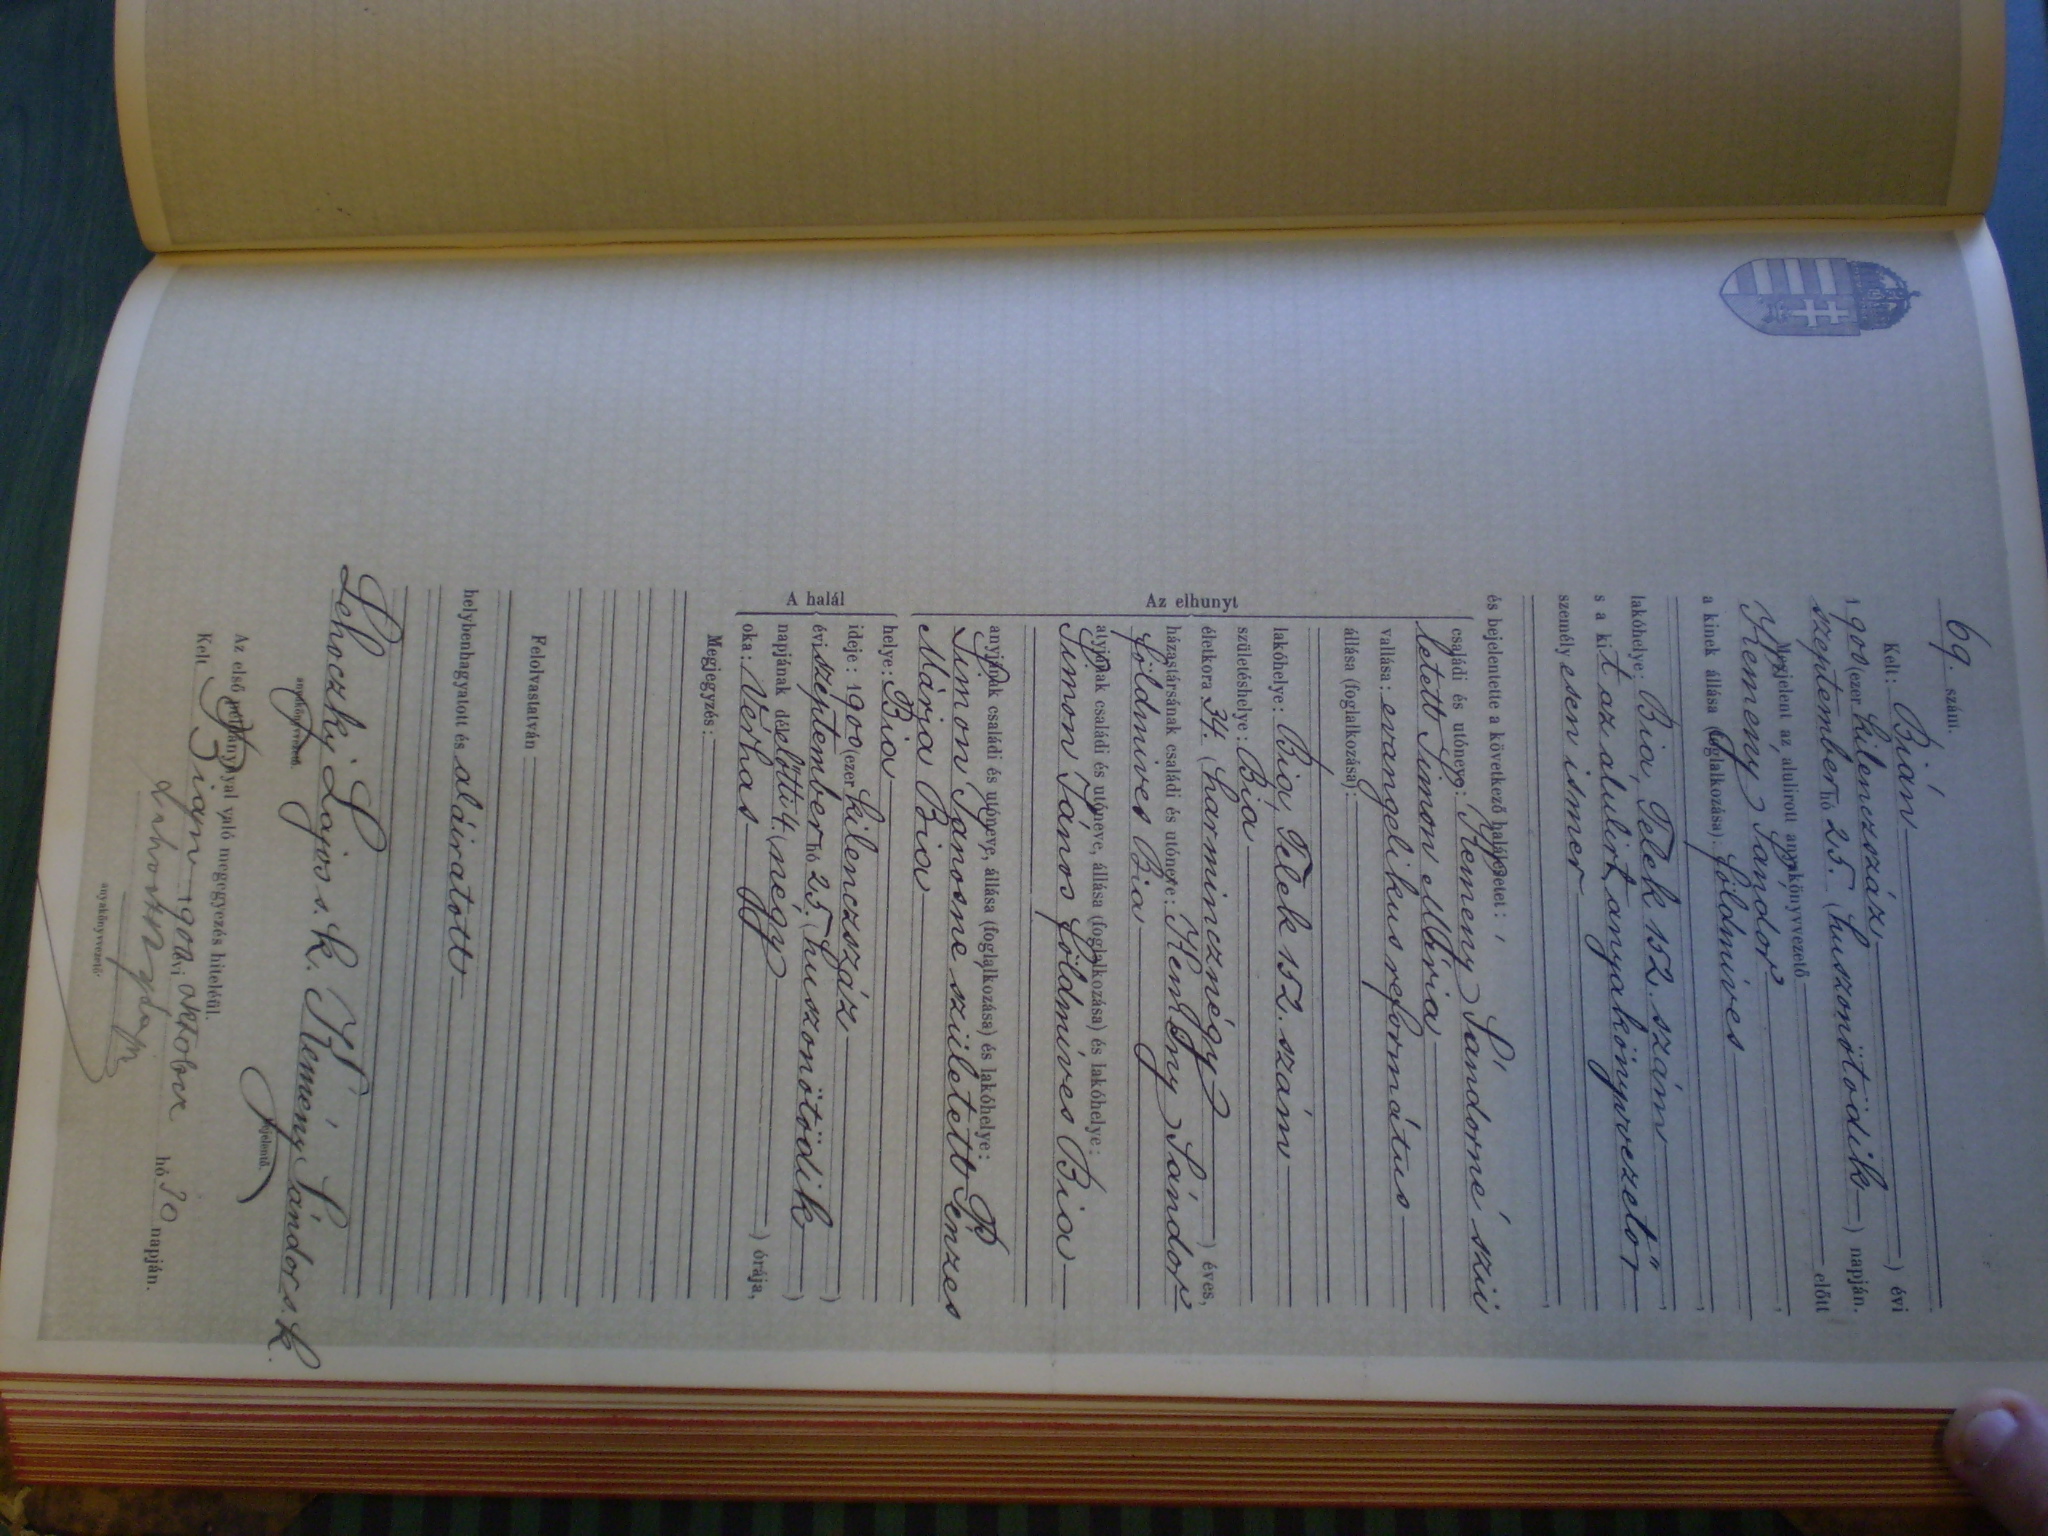 69. szám.
Kelt: Bián
1900 (ezer kilenczszáz ) évi
szeptember hó 25. (huszonötödik ) napján.
Megjelent az alulirott anyakönyvvezető előtt
Kemény Sándor
a kinek állása (foglalkozása): földmíves
lakóhelye: Bia, Telek 152. szám
s a kit az alulirt anyakönyvvezető
személyesen ismer
és bejelentette a következő halálesetet:
családi és utóneve: Kemény Sándorné szü
letett Simon Mária
vallása: evangelikus református
állása (foglalkozása):
lakóhelye: Bia, Telek 152. szám
születéshelye: Bia
életkora 34. (harmincznégy ) éves,
házastársának családi és utóneve: Kemény Sándor
földmíves Bia
atyjának családi és utóneve, állása (foglalkozása) és lakóhelye:
Simon János földmíves Bia
anyjának családi és utóneve, állása (foglalkozása) és lakóhelye:
Simon Jánosné született Pénzes
Márja Bia
Az elhunyt
helye: Bia
ideje: 1900 (ezer kilenczszáz )
évi szeptember hó 25. (huszonötödik )
napjának délelőtti 4. (négy ) órája,
oka: Vérhas
A halál
Megjegyzés:
Felolvastatván
helybenhagyatott és aláiratott
Lehoczky Lajos s. k. Kemény Sándor s. k.
anyakönyvvezető. bejelentő.
Az első példánynyal való megegyezés hiteléül.
Kelt Bián 1900 évi október hó 30 napján.
anyakönyvvezető.